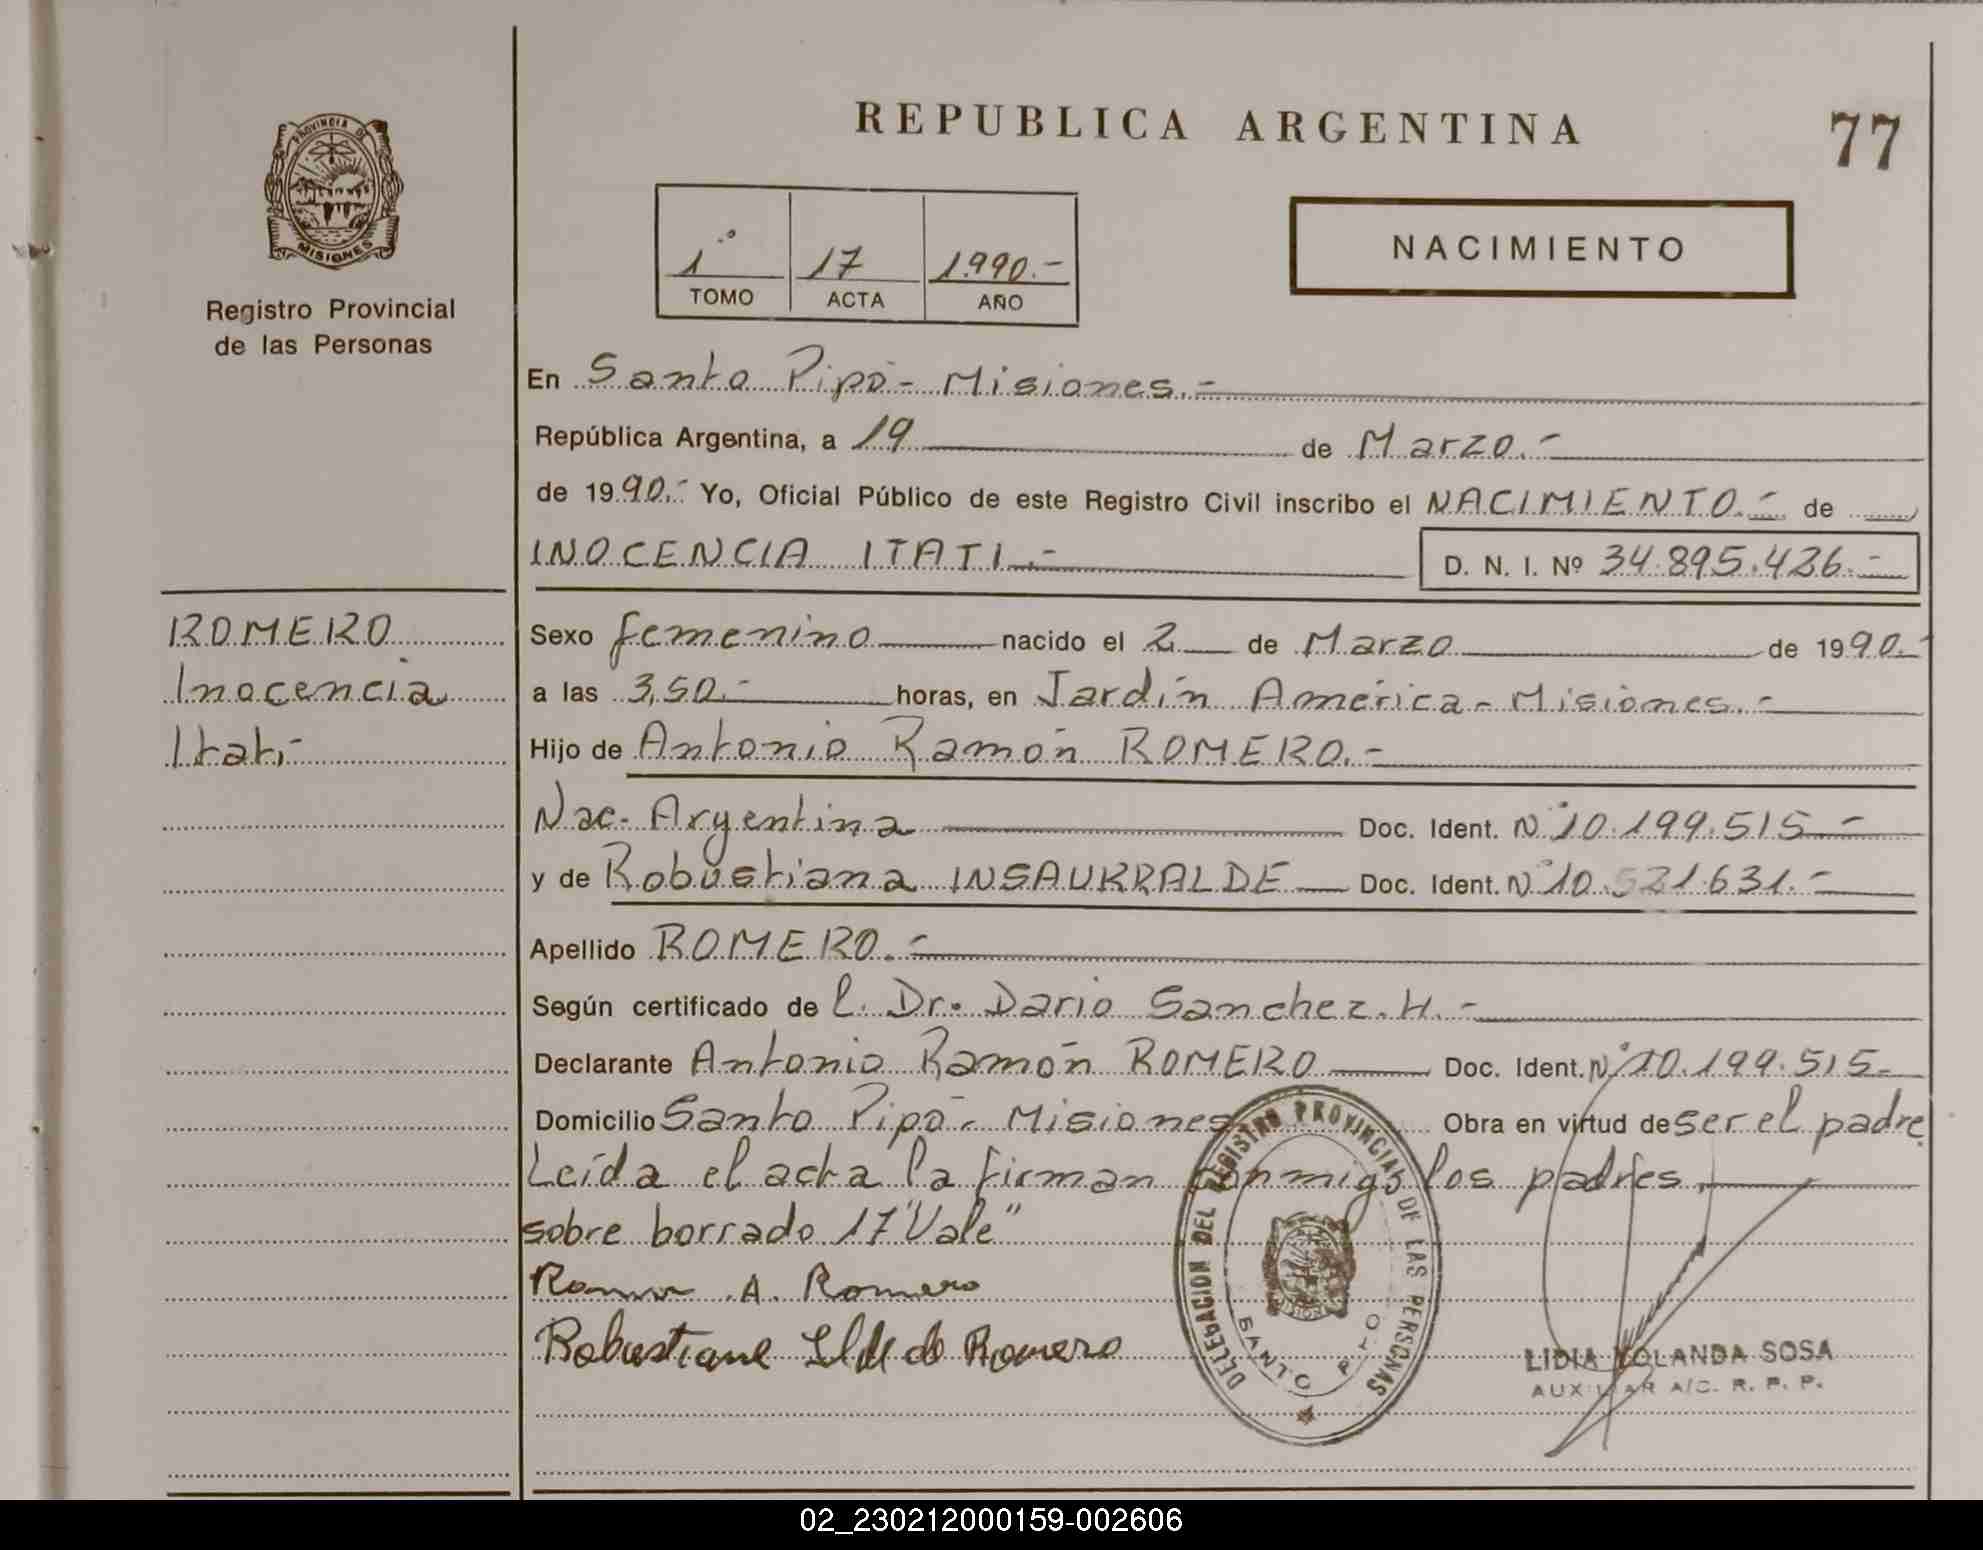 REPUBLICA ARGENTINA
77
PROVINCIA DE
MISIONES
Registro Provincial
de las Personas
1° 17 1.990.-
TOMO ACTA AÑO
NACIMIENTO
En Santo Pipó - Misiones.-
República Argentina, a 19 de Marzo.-
de 1990.- Yo, Oficial Público de este Registro Civil inscribo el NACIMIENTO.- de
INOCENCIA ITATI.- D. N. I. Nº 34.895.426.-
ROMERO
Inocencia
Itatí
Sexo femenino nacido el 2 de Marzo de 1990.-
a las 3,50.- horas, en Jardín América - Misiones.-
Hijo de Antonio Ramón ROMERO.-
Nac. Argentina Doc. Ident. N° 10.199.515.-
y de Robustiana INSAURRALDE Doc. Ident. N° 10.521.631.-
Apellido ROMERO.-
Según certificado de l. Dr. Dario Sanchez. H.-
Declarante Antonio Ramón ROMERO Doc. Ident. N° 10.199.515-
Domicilio Santo Pipó - Misiones Obra en virtud de ser el padre.
Leída el acta la firman conmigo los padres.
sobre borrado 17 "Vale"
Ramon A. Romero
Robustiane de Romero
DELEGACION DEL REGISTRO PROVINCIAL DE LAS PERSONAS
SANTO PIPO
LIDIA YOLANDA SOSA
AUXILIAR A/C. R. P. P.
02_230212000159-002606